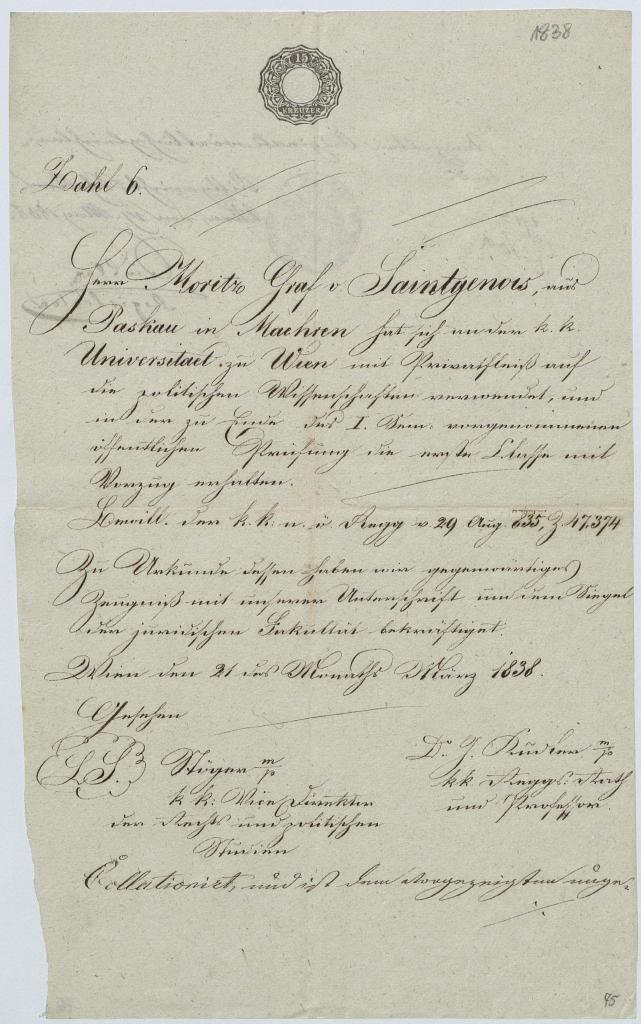 1838
15
KREUZER
Zahl 6.
Herr Moritz Graf v Saintgenois, aus
Paskau in Maehren hat sich an der k. k.
Universitaet zu Wien mit Privatfleiß auf
die politischen Wissenschaften verwendet, und
in der zu Ende des I. Sem. vorgenommenen
öffentlichen Prüfung die erste Classe mit
Vorzug erhalten.
Bewill. der k. k. n. ö Regg v. 29 Aug 835, Z. 47.374
Zu Urkunde dessen haben wir gegenwärtiges
Zeugniß mit unserer Unterschrift und dem Siegel
der juridischen Fakultät bekräftiget.
Wien den 21 des Monaths März 1838.
Gesehen
(L.S.) Stöger m/p
k k. Vice Direktor
der Rechts und politischen
Studien
Dr J. Kudler m/p
k.k. Reggs. Rath
und Professor.
Collationirt, und ist dem vorgezeigten unge-
75